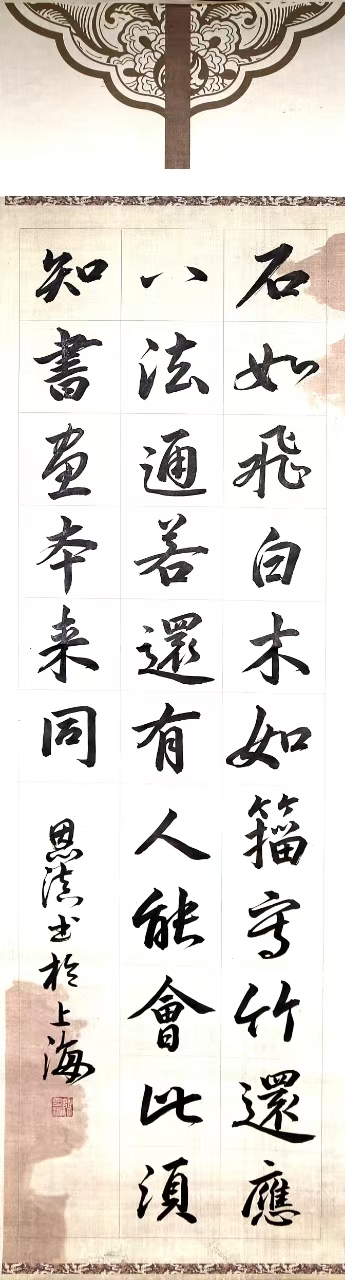 石如飛白木如籀寫竹還應
八法通若還有人能會此須
知書畫本来同
恩书於上海